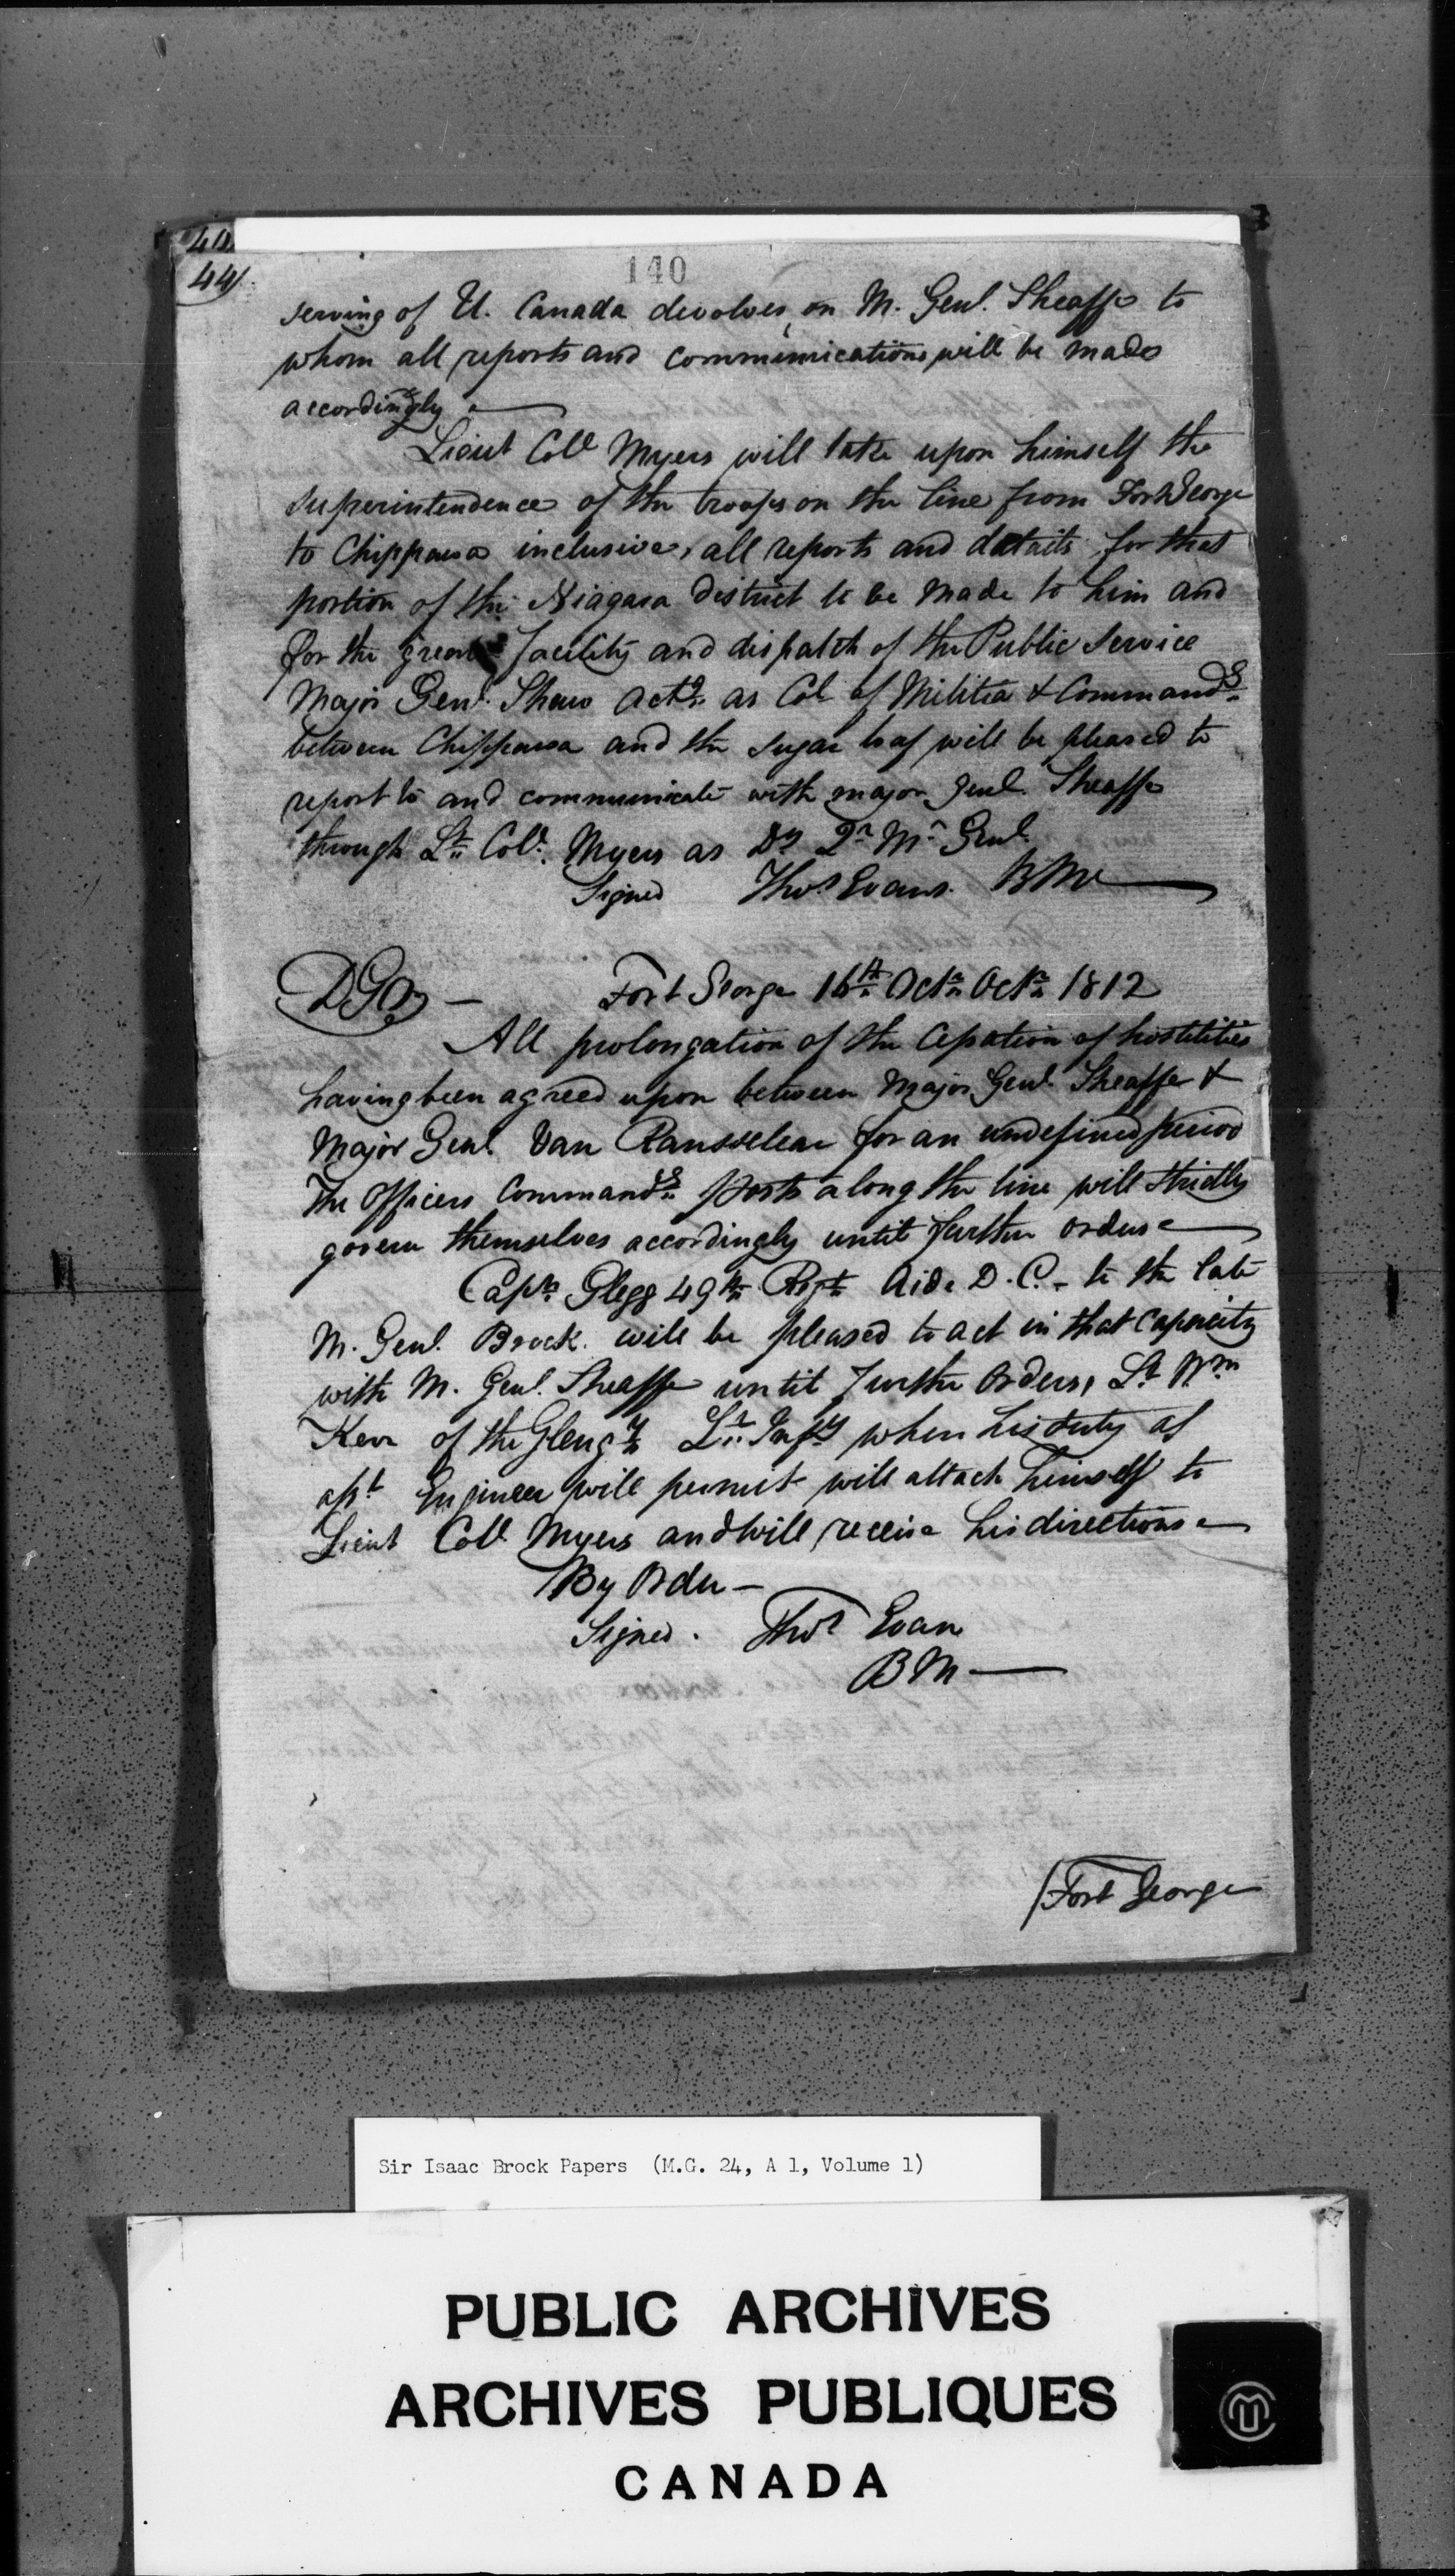 44
44
140
serving of U. Canada devolves on M. Genl. Sheaffe to
whom all reports and communications will be made
accordingly
Lieut Coll Myers will take upon himself the
superintendence of the troops on the line from Fort George
to Chippawa inclusive, all reports and details for that
portion of the Niagara District to be made to him and
for the facility and dispatch of the Public Service
Major Genl. Shaw actg. as Col of Militia & Commandg.
between Chippawa and the sugar loaf will be pleased to
report to and communicate with major Genl. Sheaffe
through Lt. Coll. Myers as Dy Qr Mr Genl.
Signed Thos Evans. BM
DGO — Fort George 16th Octr. Octr. 1812
All prolongation of the Cessation of hostilities
having been agreed upon between Major Genl Sheaffe &
Major Genl Van Ransselear for an undefined period
The Officers Commandg. posts along the line will stridly
govern themselves accordingly until further orders
Capt. Glegg 49th Regt. Aid. D. C. to the late
M. Genl. Brock. will be pleased to act in that Capacity
with M. Genl. Sheaffe until further Orders, Lt Wm
Kerr of the Glengy. Lt. Infy when his duty as
asst Engineer will permit will attach himself to
Lieut Coll Myers and will receive his directions
By Order —
Signed. Thos Evan
BM —
/Fort George
Sir Isaac Brock Papers (M.G. 24, A 1, Volume 1)
PUBLIC ARCHIVES
ARCHIVES PUBLIQUES
CANADA